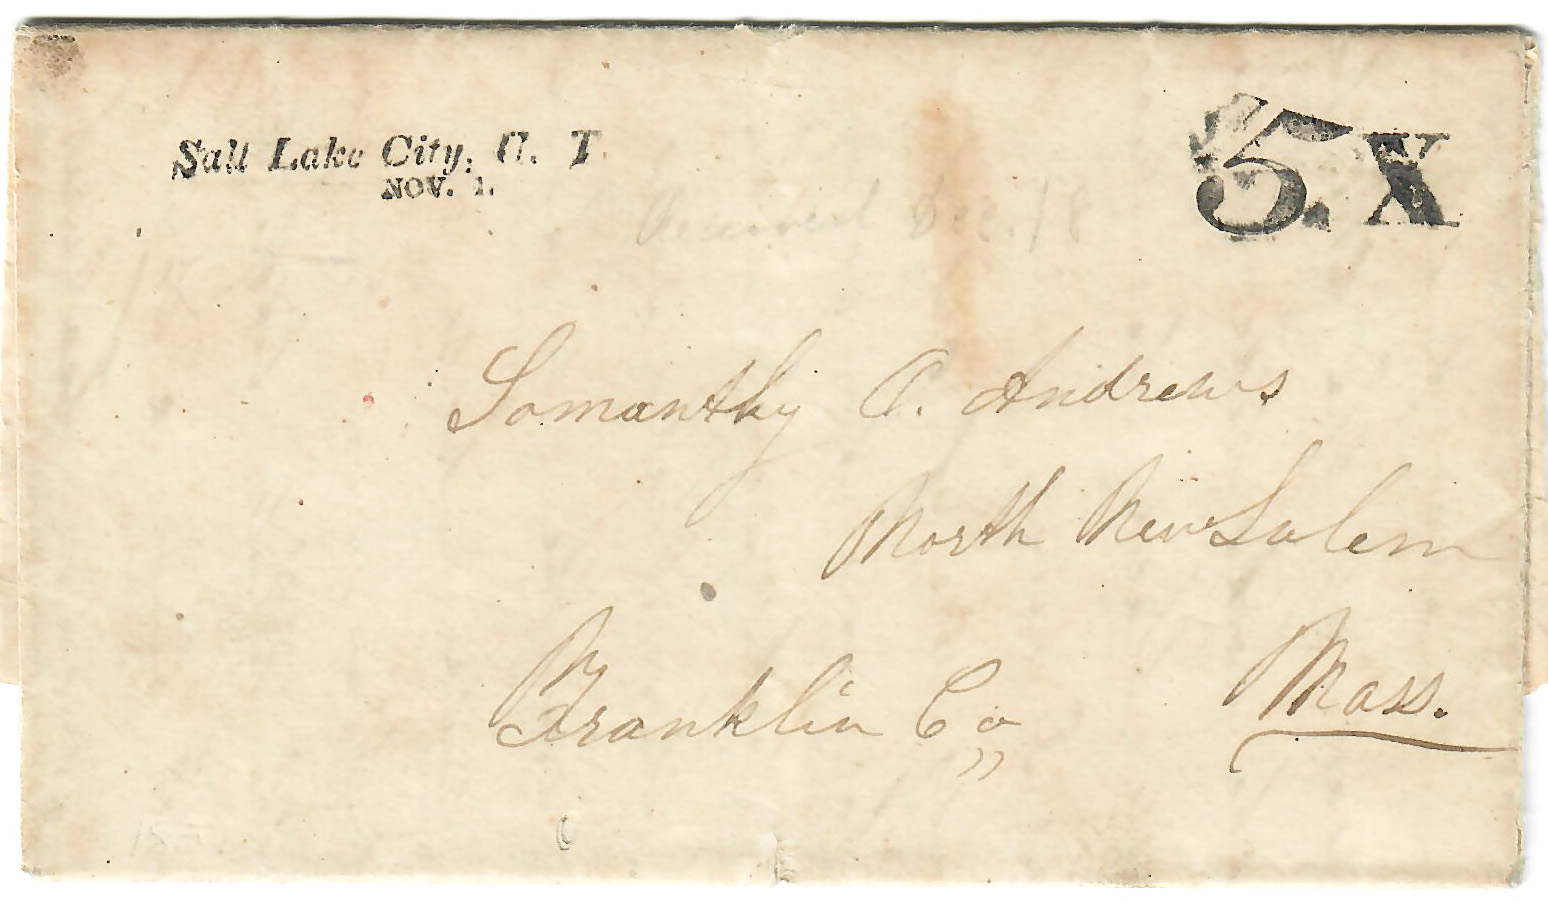 Salt Lake City, U. T.
NOV. 1.
5. X
Received Dec. 18
Somanthy A. Andrews
North New Salem
Franklin Co
Mass.